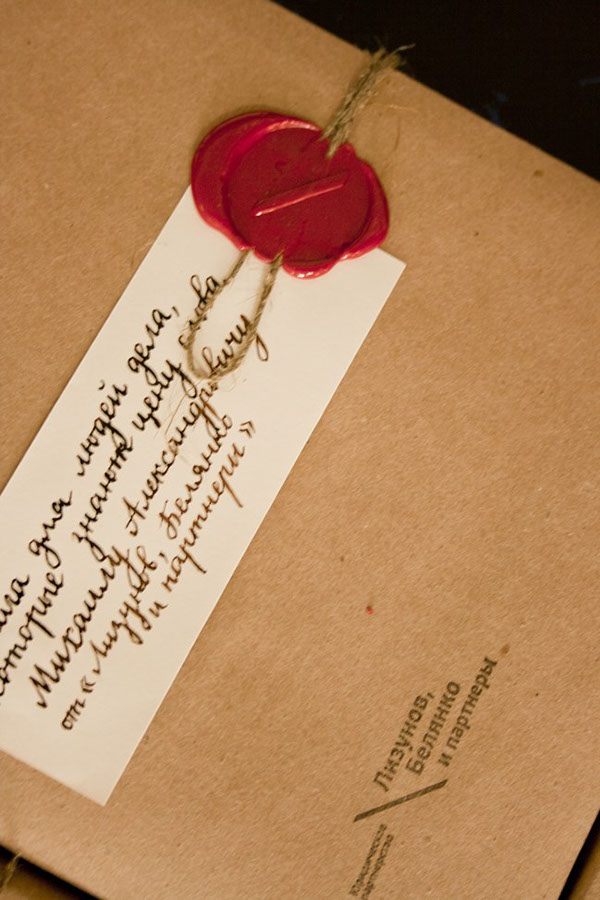 для людей дела,
которые знают цену слова
Михаилу Александровичу
от « Лизунов, Белянко
и партнеры »
Лизунов,
Белянко
и партнеры
Классическое
партнерство